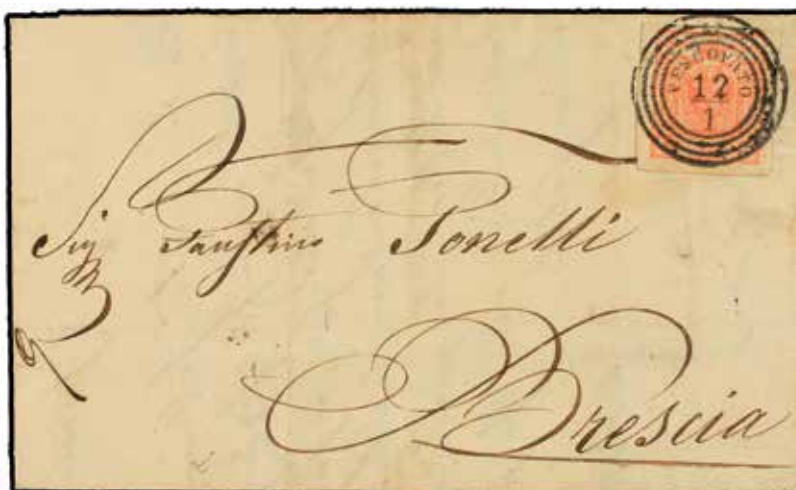 VESCOVATO
12
1
Sig Faustino Ponelli
Brescia